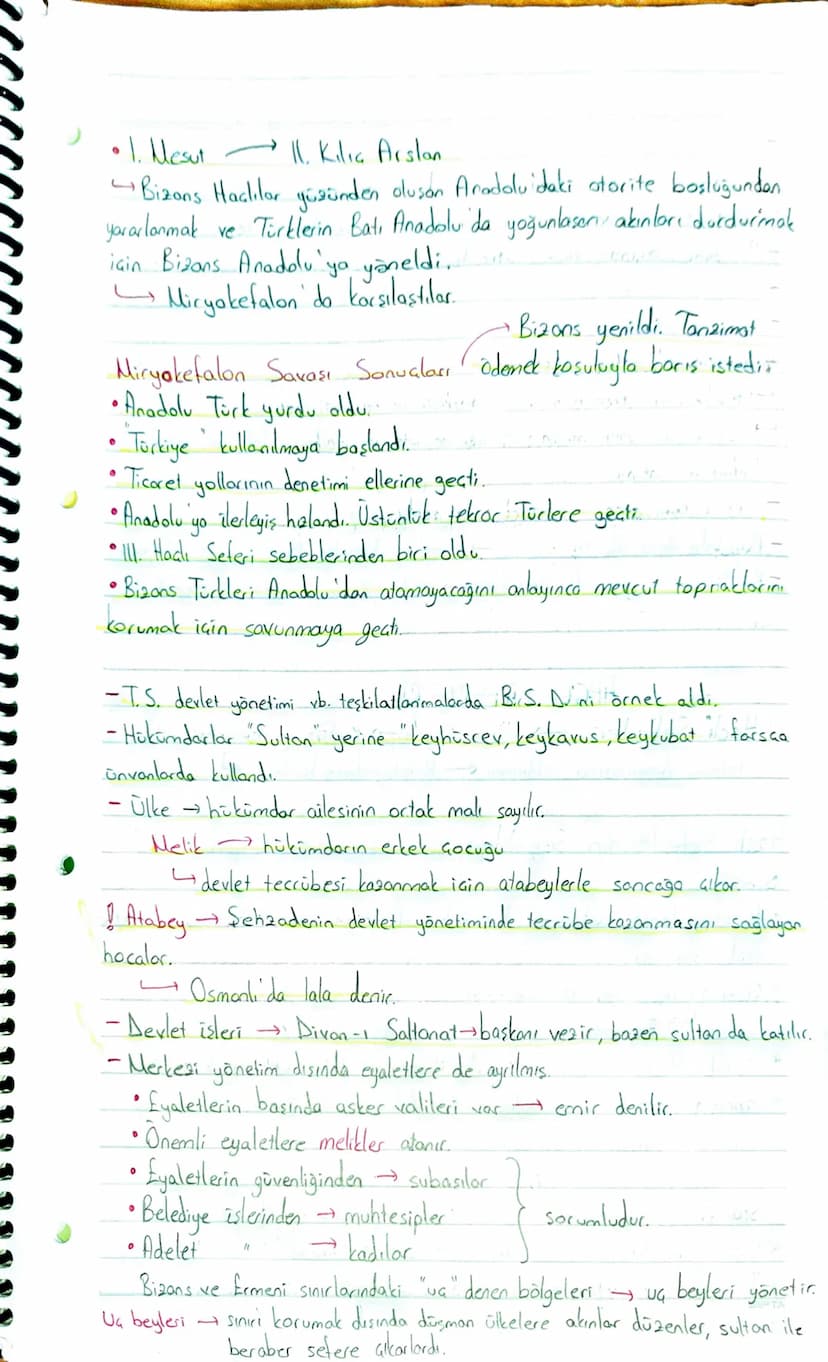 • I. Mesut → II. Kılıc Arslan
↳ Bizans Haclılar yüzünden olusan Anadolu'daki otorite bosluğundan
yararlanmak ve Türklerin Batı Anadolu'da yoğunlasan akınları durdurmak
icin Bizans Anadolu'ya yöneldi.
↳ Miryokefalon'da karsılastılar.
→ Bizans yenildi. Tanzimat
Miryokefalon Savası Sonucları ödemek kosuluyla barıs istedi.
• Anadolu Türk yurdu oldu.
• "Türkiye" kullanılmaya başlandı.
• Ticaret yollarının denetimi ellerine gecti.
• Anadolu'ya ilerleyiş halandı. Üstünlük tekrar Türlere gecti.
• III. Haclı Seferi sebeblerinden biri oldu.
• Bizans Türkleri Anadolu'dan atamayacağını anlayınca mevcut topraklarını
korumak icin savunmaya gecti.
- T.S. devlet yönetimi vb. teşkilatlanmalarda B.S. D.'ni örnek aldı.
- Hükümdarlar "Sultan" yerine "keyhüsrev, keykavus, keykubat" farsca
ünvanlarda kullandı.
- Ülke → hükümdar ailesinin ortak malı sayılır.
Melik → hükümdarın erkek cocuğu
↳ devlet tecrübesi kazanmak icin atabeylerle sancağa cıkar.
! Atabey → Sehzadenin devlet yönetiminde tecrübe kazanmasını sağlayan
hocalar.
↳ Osmanlı'da lala denir.
- Devlet işleri → Divan-ı Saltanat → başkanı vezir, bazen sultan da katılır.
- Merkezi yönetim dısında eyaletlere de ayrılmıs.
• Eyaletlerin basında asker valileri var → emir denilir.
• Önemli eyaletlere melikler atanır.
• Eyaletlerin güvenliğinden → subasılar
• Belediye islerinden → muhtesipler } sorumludur.
• Adelet " → kadılar
Bizans ve Ermeni sınırlarındaki "uc" denen bölgeleri → uc beyleri yönetir.
Uc beyleri → sınırı korumak dısında düsman ülkelere akınlar düzenler, sultan ile
beraber sefere cıkarlardı.